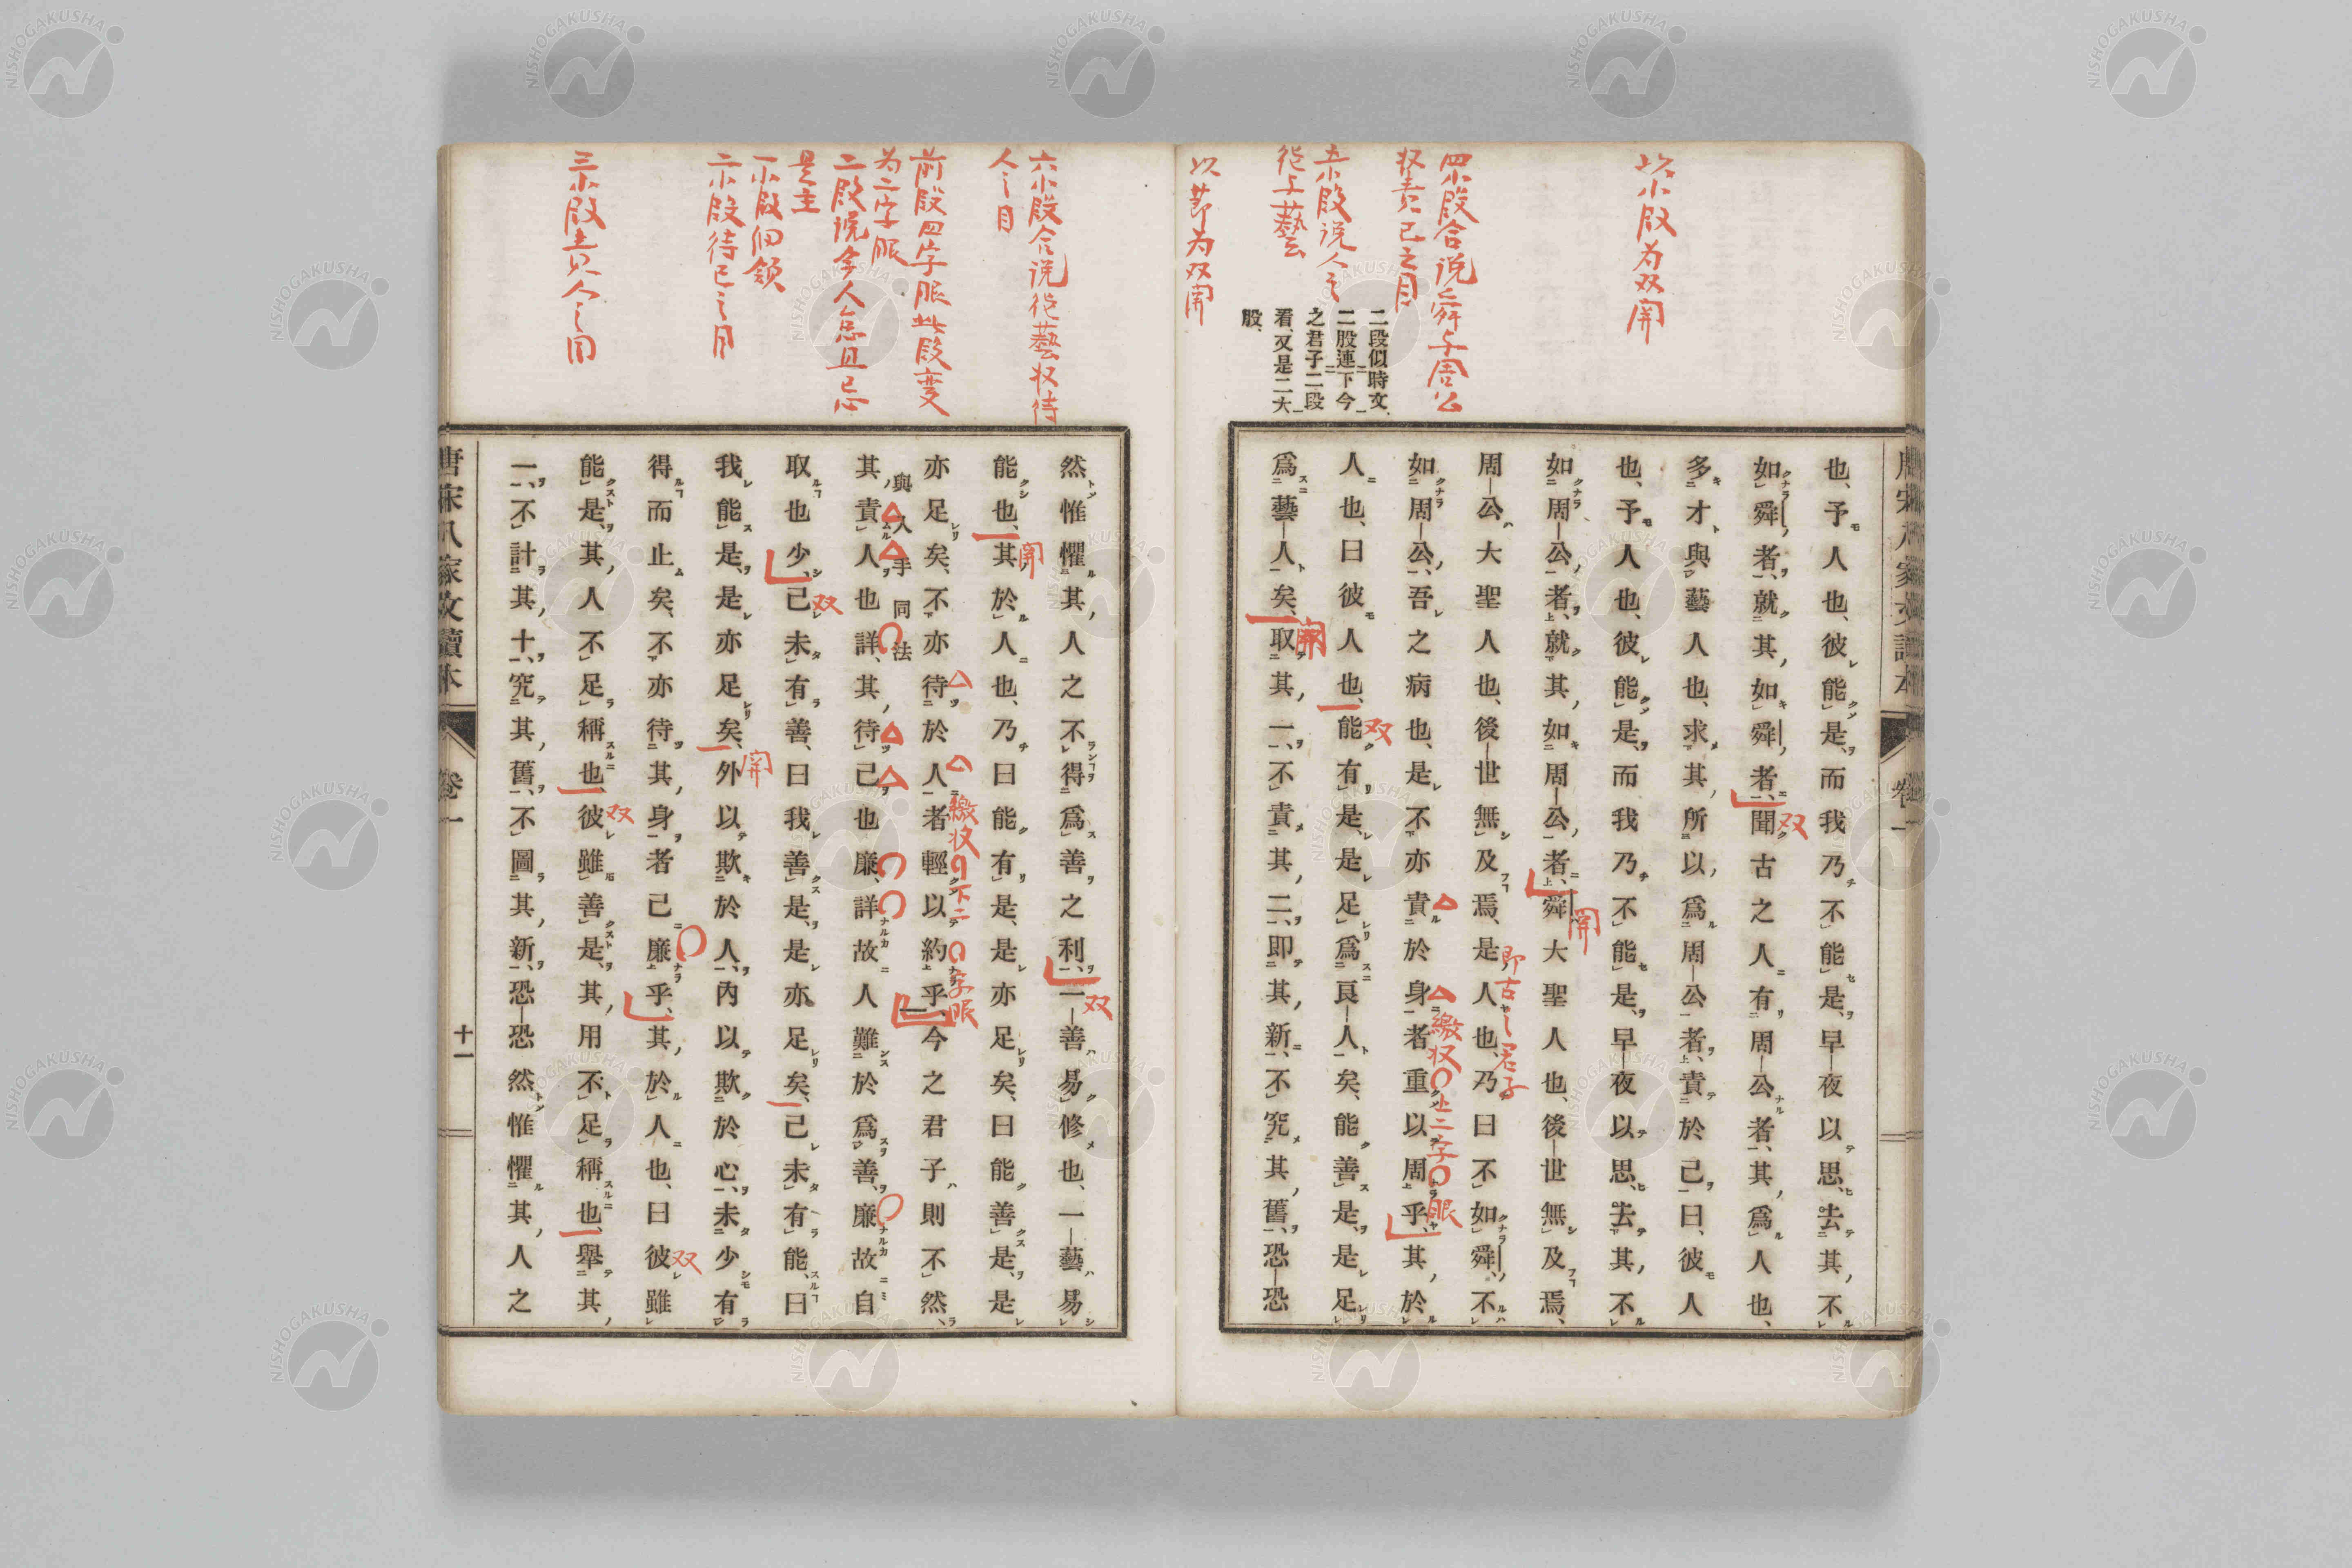 此小段为双開
四小段合说舜与周公
収責己之目
二段似時文
二股連下今
之君子二段
看又是二大
股、
五小段说人之
能与藝
以節为双開
也、予人也、彼能是、而我乃不能是、早夜以思、去其不
如舜者、就其如舜者、聞古之人有周公者、其爲人也、
多才與藝人也、求其所以爲周公者、責於己曰、彼人
也、予人也、彼能是、而我乃不能是、早夜以思、去其不
如周公者、就其如周公者、舜大聖人也、後世無及焉、
周公大聖人也、後世無及焉、是人也、乃曰不如舜、不
即古之君子
如周公、吾之病也、是不亦責於身者重以周乎、其於
繳収〇上二字〇眼
人也、曰彼人也、能有是、是足爲良人矣、能善是、是足
爲藝人矣、取其一、不責其二、即其新、不究其舊、恐恐
双
開
双
開
六小段合说能藝収待
人之目
前段四字眼此段变
为二字眼
二段说今人怠且忌
是主
一小段仍領
二小段待己之目
三小段責人之目
然惟懼其人之不得爲善之利、一善易修也、一藝易
能也、其於人也、乃曰能有是、是亦足矣、曰能善是、是
亦足矣、不亦待於人者輕以約乎、今之君子則不然、
繳収〇下二〇字眼
與入手同法
其責人也詳、其待己也廉、詳故人難於爲善、廉故自
取也少、己未有善、曰我善是、是亦足矣、己未有能、曰
我能是、是亦足矣、外以欺於人、內以欺於心、未少有
得而止矣、不亦待其身者已廉乎、其於人也、曰彼雖
能是、其人不足稱也、彼雖善是、其用不足稱也、舉其
一、不計其十、究其舊、不圖其新、恐恐然惟懼其人之
双
開
双
開
双
双
唐宋八家文讀本
卷一
十一